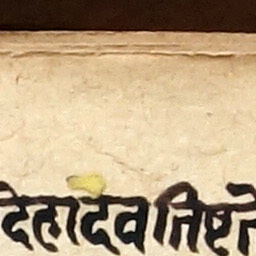 देहादेवतिष्टते